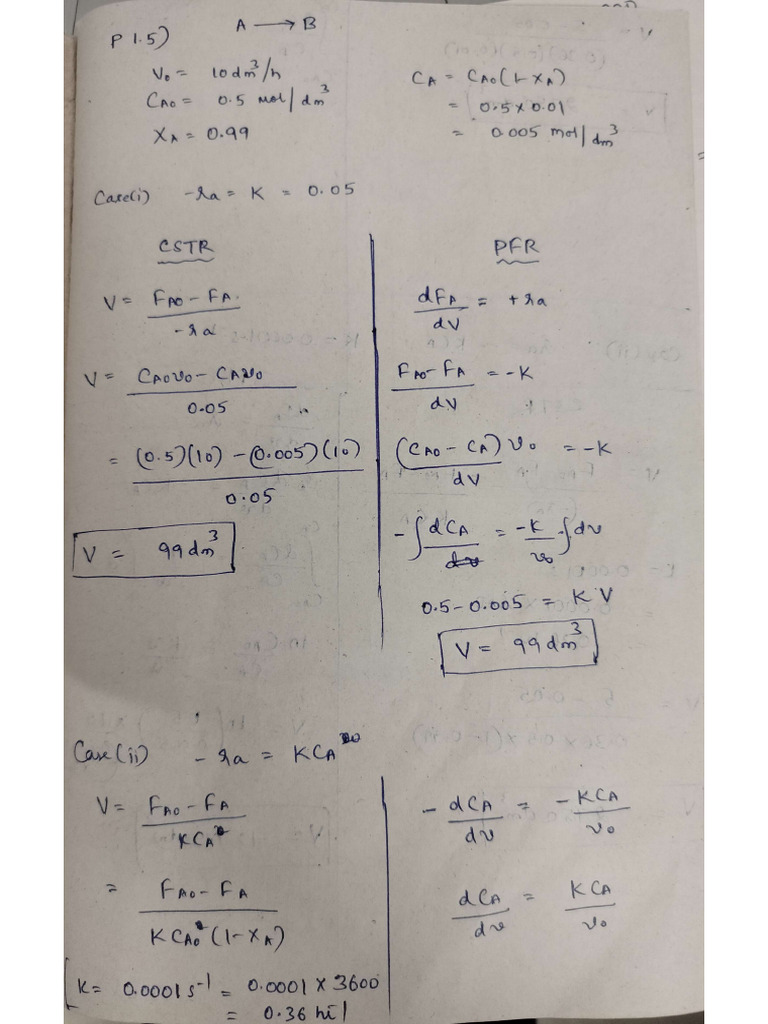 P 1.5) A ⟶ B
V₀ = 10 dm³/h
C_A0 = 0.5 mol/dm³
X_A = 0.99
C_A = C_A0(1-X_A)
= 0.5 × 0.01
= 0.005 mol/dm³
Case(i) -ra = K = 0.05
CSTR
V = (F_A0 - F_A) / -ra
V = (C_A0 v0 - C_A v0) / 0.05
= ((0.5)(10) - (0.005)(10)) / 0.05
V = 99 dm³
PFR
dF_A/dV = +ra
(F_A0 - F_A)/dV = -K
(C_A0 - C_A) v0 / dV = -K
-∫ dC_A = -K/v0 ∫dv
0.5 - 0.005 = K V
V = 99 dm³
Case(ii) -ra = KC_A
V = (F_A0 - F_A) / KC_A
= (F_A0 - F_A) / KC_A0 (1-X_A)
[K = 0.0001 s⁻¹ = 0.0001 × 3600
= 0.36 hr⁻¹
- dC_A/dv = -KC_A/v0
dC_A/dv = KC_A/v0